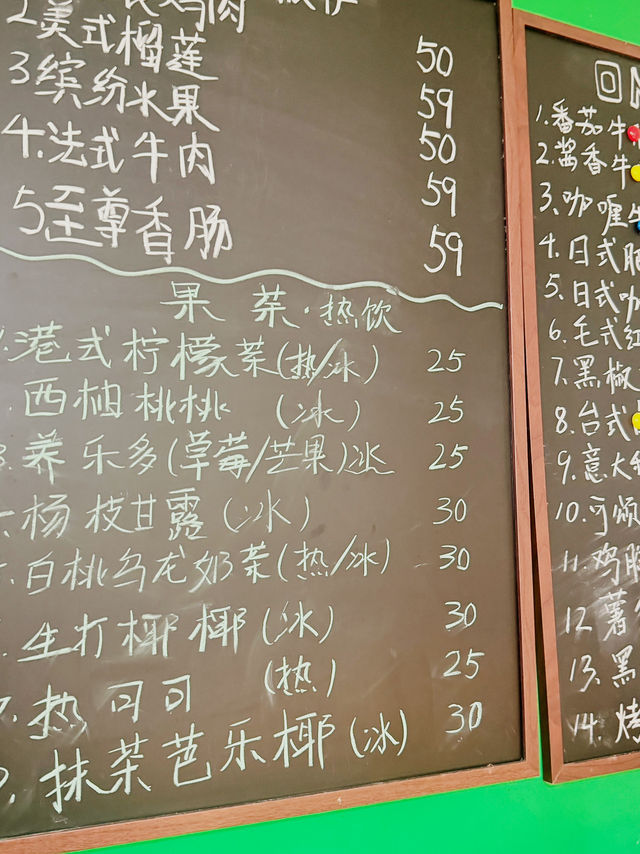 2美式榴莲 50
3缤纷水果 59
4.法式牛肉 50
5至尊香肠 59
59
果茶·热饮
港式柠檬茶(热/冰) 25
西柚桃桃 (冰) 25
养乐多(草莓/芒果)冰 25
杨枝甘露(冰) 30
白桃乌龙奶茶(热/冰) 30
生打椰椰(冰) 30
热可可 (热) 25
抹茶芭乐椰(冰) 30
回
1.番茄牛
2.酱香牛
3.咖喱牛
4.日式
5.日式咖
6.毛式红
7.黑椒
8.台式
9.意大利
10.可颂
11.鸡胸
12薯
13.黑
14.烤